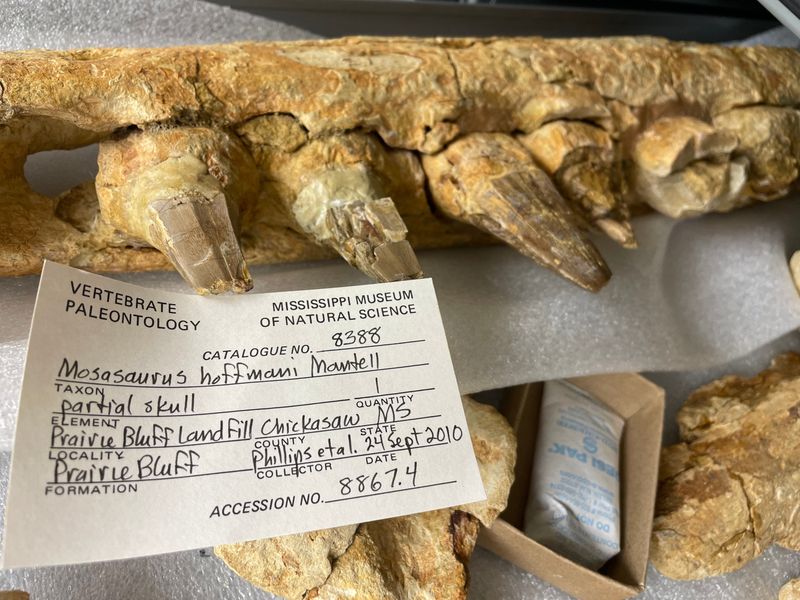 VERTEBRATE
PALEONTOLOGY
MISSISSIPPI MUSEUM
OF NATURAL SCIENCE
CATALOGUE NO. 8388
Mosasaurus hoffmani Mantell
TAXON
partial skull 1
ELEMENT QUANTITY
Prairie Bluff Landfill Chickasaw MS
LOCALITY COUNTY STATE
Prairie Bluff Phillips et al. 24 Sept 2010
FORMATION COLLECTOR DATE
ACCESSION NO. 8867.4
PAK
DO NO